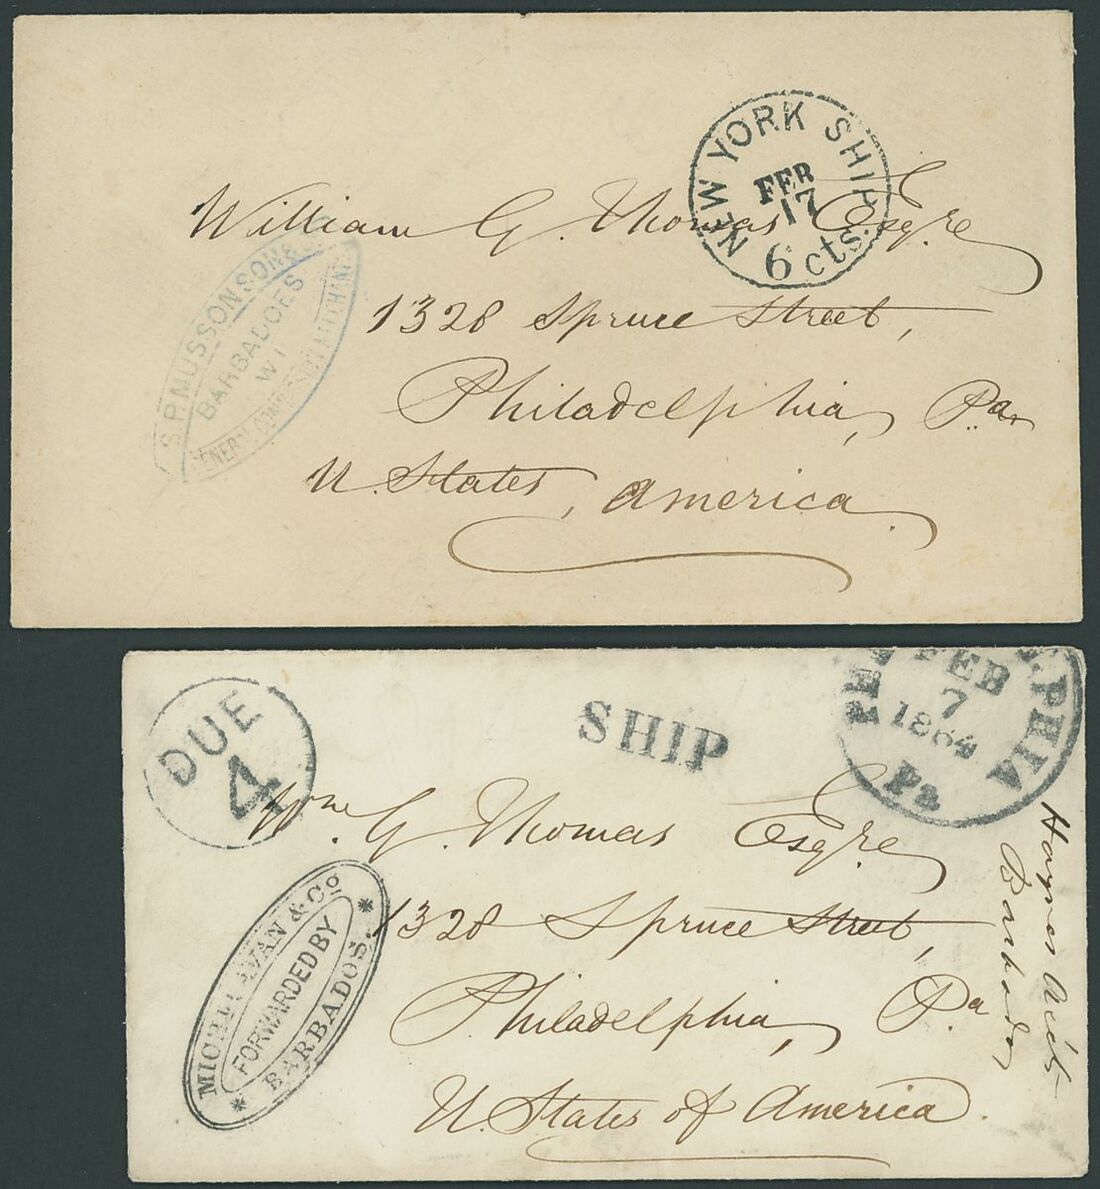 NEW YORK SHIP
FEB
17
6 cts.
William G. Thomas Esqre
1328 Spruce Street,
Philadelphia, Pa
U. States, America.
S.P. MUSSON SON &
BARBADOES
W I
GENERAL COMMISSION MERCHANT
DUE
4
SHIP
FEB
7
1864
Pa
Wm. G. Thomas Esqre
1328 Spruce Street,
Philadelphia, Pa
U. States of America.
& Co
FORWARDED BY
BARBADOS.